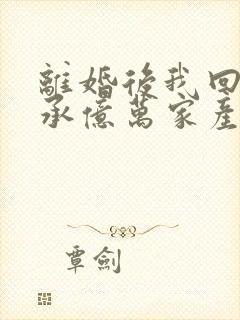 離婚後我回
承億萬家產
覃劍